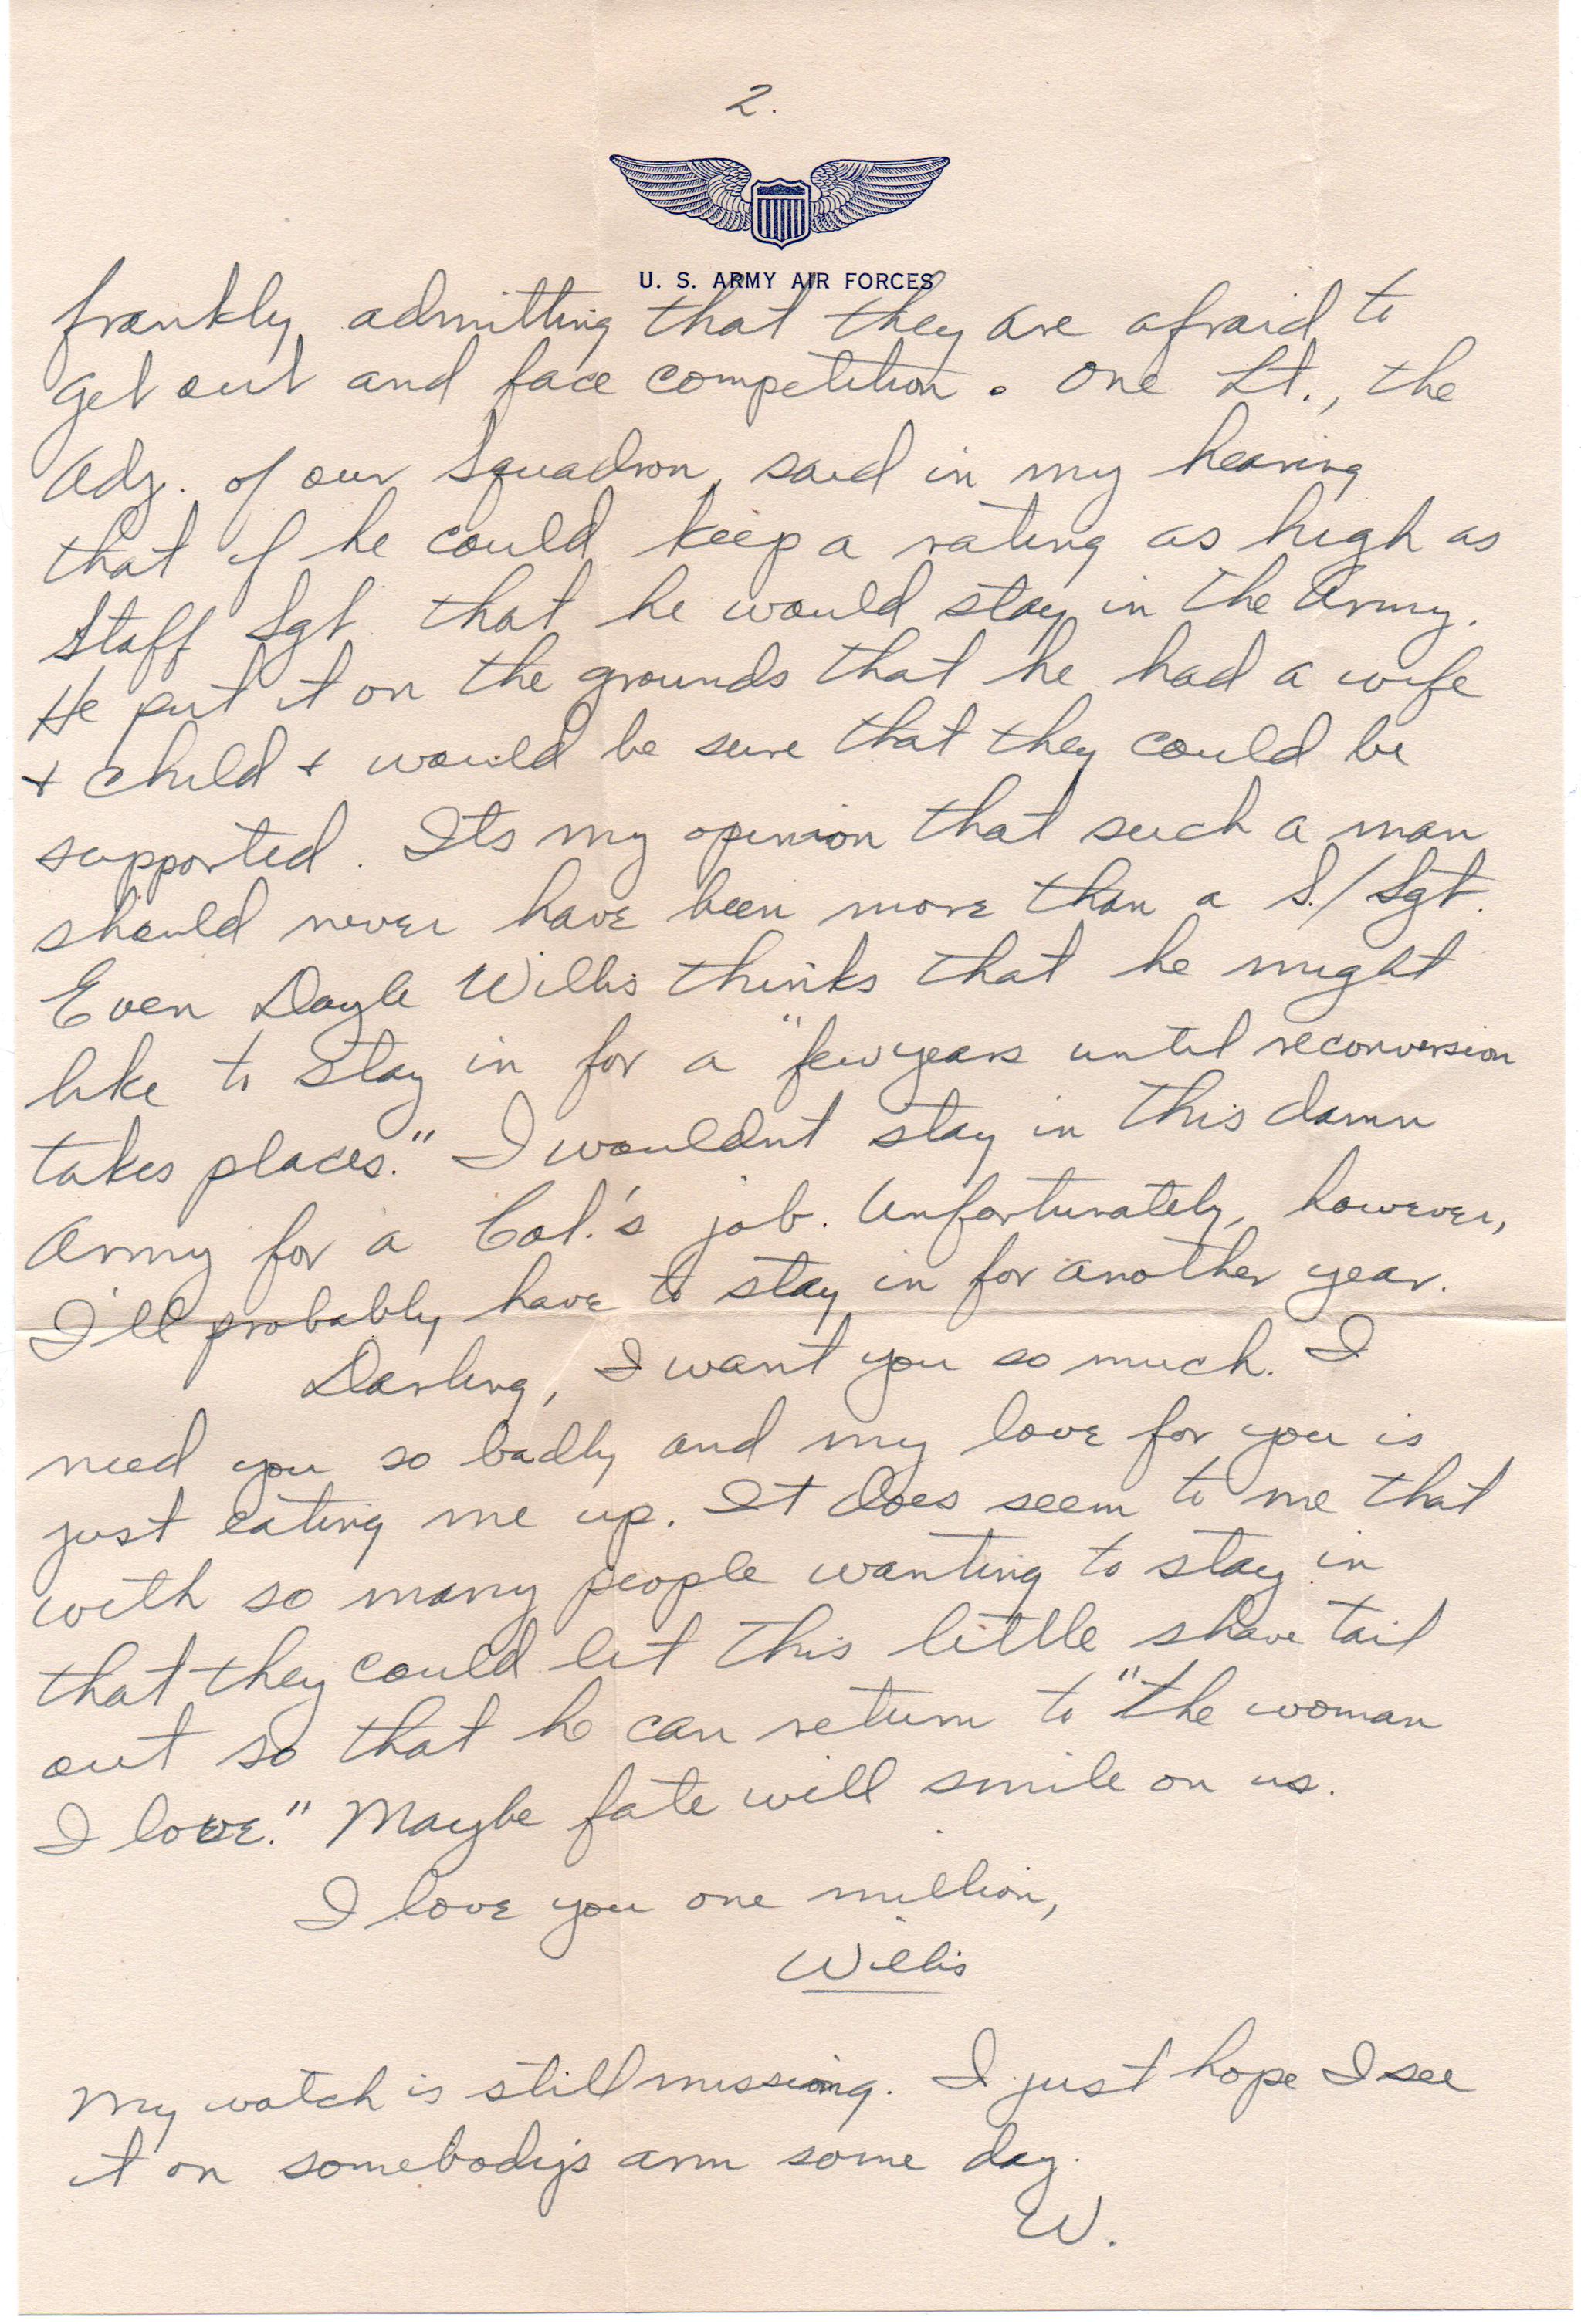 2.
U. S. ARMY AIR FORCES
frankly admitting that they are afraid to
get out and face competition. One Lt., the
Adj. of our Squadron, said in my hearing
that if he could keep a rating as high as
Staff Sgt. that he would stay in the Army.
He put it on the grounds that he had a wife
+ child + would be sure that they could be
supported. Its my opinion that such a man
should never have been more than a S./Sgt.
Even Doyle Willis thinks that he might
like to stay in for a "few years until reconversion
takes places." I wouldnt stay in this damn
Army for a Col.'s job. Unfortunately, however,
I'll probably have to stay in for another year.
Darling, I want you so much. I
need you so badly and my love for you is
just eating me up. It does seem to me that
with so many people wanting to stay in
that they could let this little shave tail
out so that he can return to "the woman
I love." Maybe fate will smile on us.
I love you one million,
Willis
My watch is still missing. I just hope I see
it on somebody's arm some day.
W.